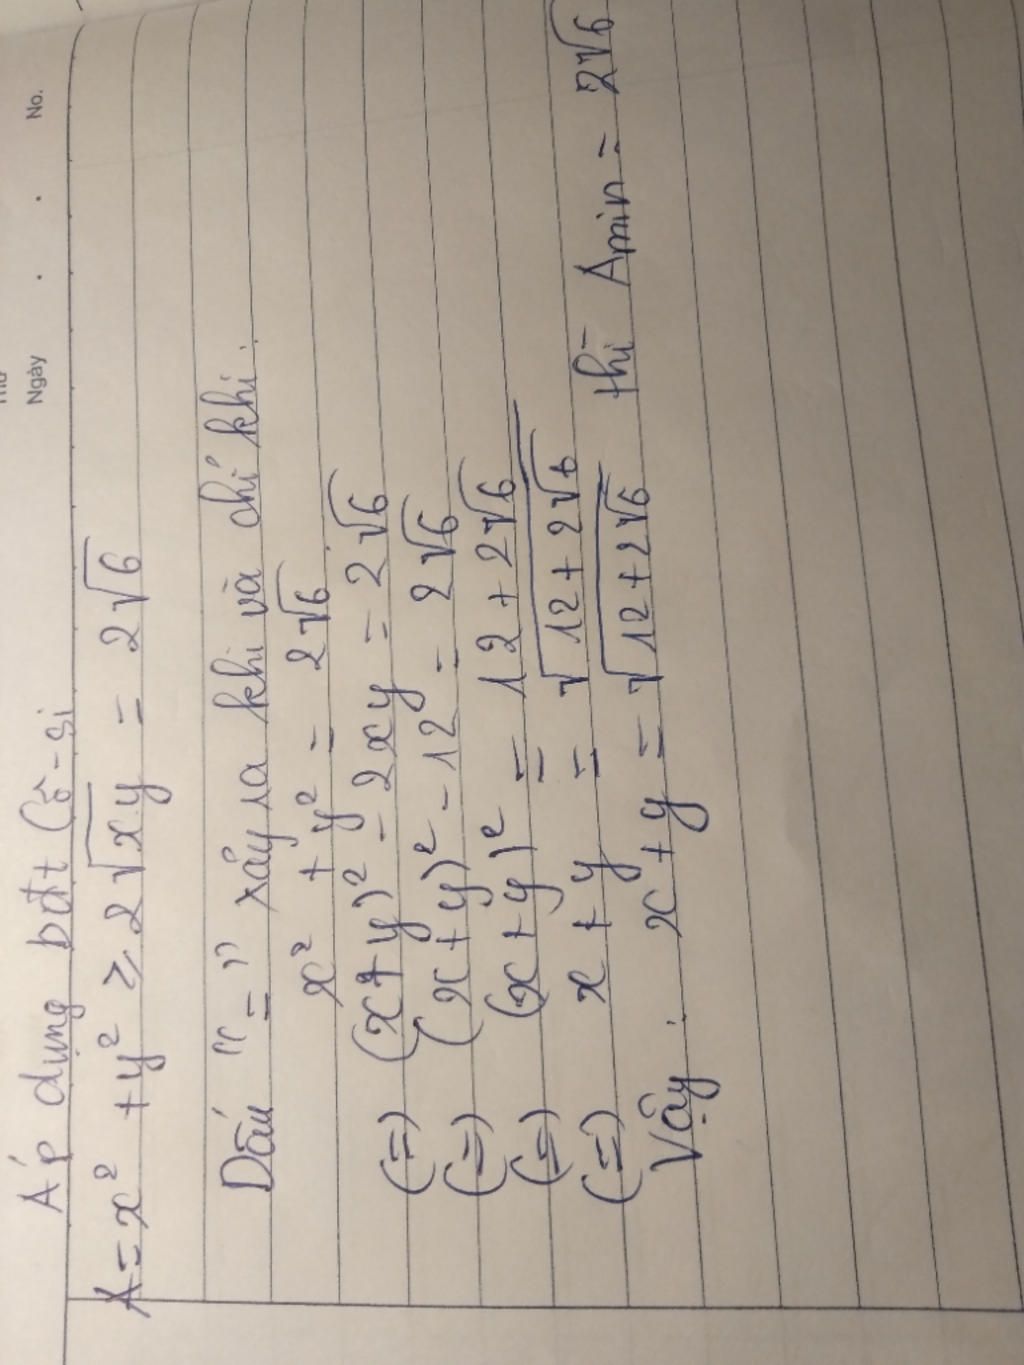 Ngày . . No.
Áp dụng bđt Cô-si
A = x² + y² ≥ 2√xy = 2√6
Dấu "=" xảy ra khi và chỉ khi:
x² + y² = 2√6
(=) (x+y)² - 2xy = 2√6
(=) (x+y)² - 12 = 2√6
(=) (x+y)² = 12 + 2√6
(=) x + y = √(12 + 2√6)
Vậy: x + y = √(12 + 2√6) thì Amin = 2√6